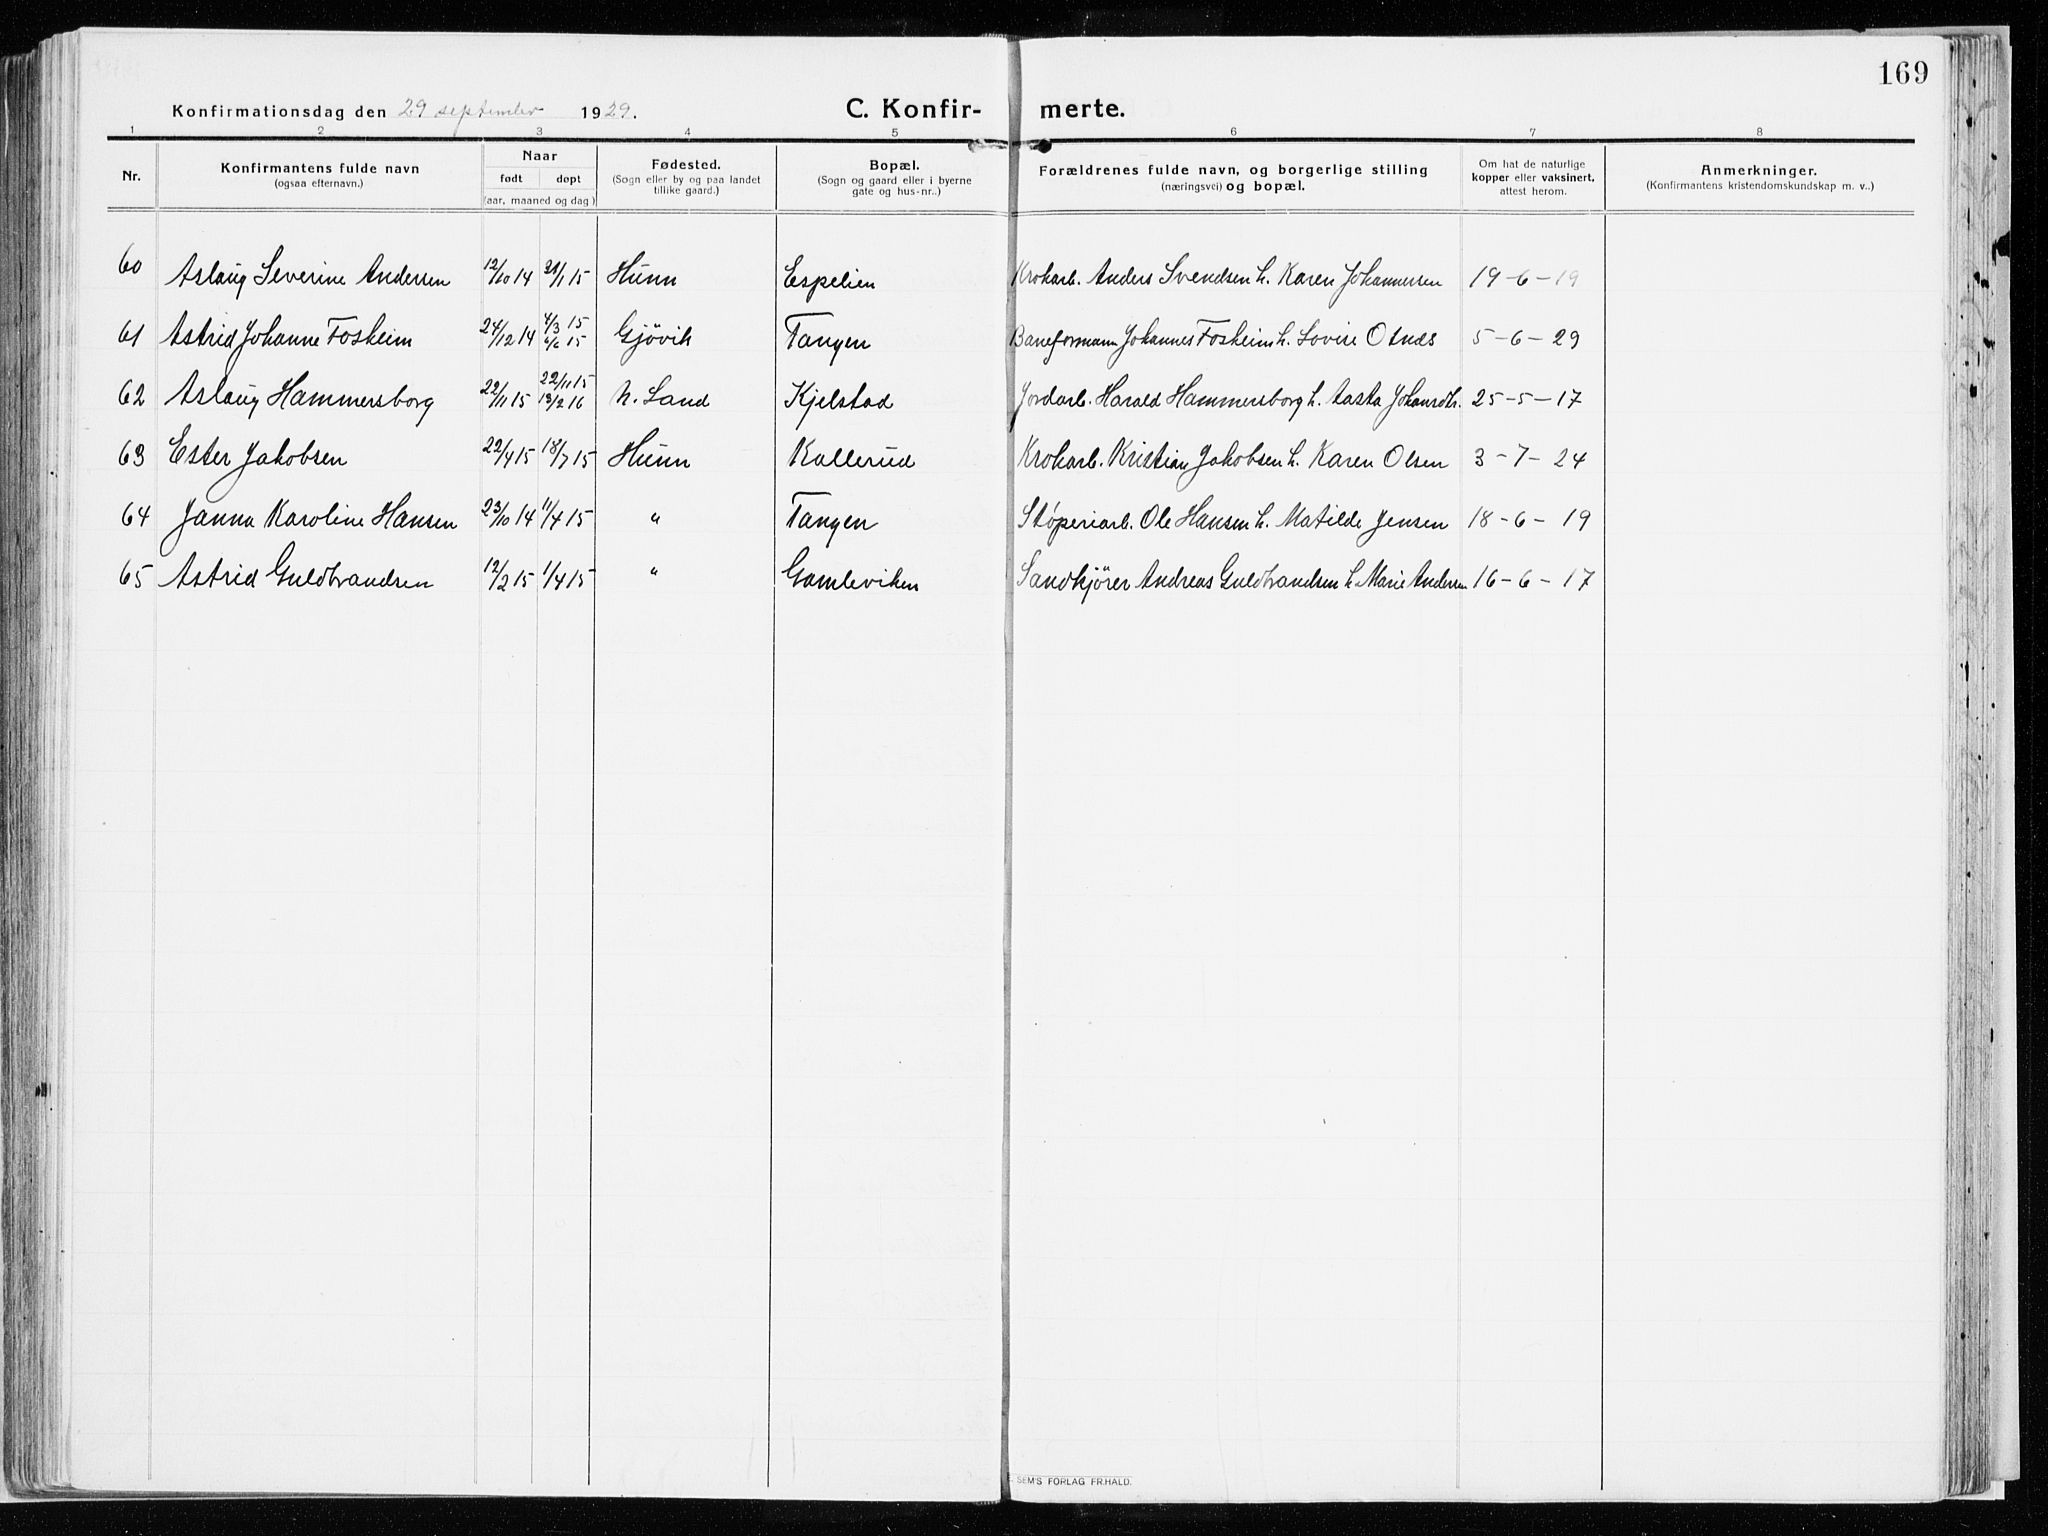 169
Konfirmationsdag den 29 september 1929. C. Konfir- merte.
1 2 3 4 5 6 7 8
Nr. Konfirmantens fulde navn (ogsaa efternavn.) Naar født døpt (aar, maaned og dag) Fødested. (Sogn eller by og paa landet tillike gaard.) Bopæl. (Sogn og gaard eller i byerne gate og hus-nr..) Forældrenes fulde navn, og borgerlige stilling (næringsvei) og bopæl. Om hat de naturlige kopper eller vaksinert, attest herom. Anmerkninger. (Konfirmantens kristendomskundskap m. v..)
60 Aslaug Severine Andersen 12/10 14 31/1 15 Hunn Espelien Krokarb. Anders Svendsen h. Karen Johannesen 19-6-19
61 Astrid Johanne Fosheim 24/12 14 4/3 15 6/6 15 Gjøvik Tangen Baneformann Johannes Fosheim h. Lovise Otnes 5-6-29
62 Aslaug Hammersborg 22/11 15 22/11 15 13/2 16 N. Land Kjelstad Jordarb. Harald Hammersborg h. Aasta Johansdtr. 25-5-17
63 Ester Jakobsen 22/4 15 18/7 15 Hunn Kallerud Krokarb. Kristian Jakobsen h. Karen Olsen 3-7-24
64 Janna Karoline Hansen 23/10 14 11/4 15 " Tangen Støperiarb. Ole Hansen h. Matilde Jensen 18-6-19
65 Astrid Guldbrandsen 12/2 15 1/4 15 " Gamleviken Sandkjører Andreas Guldbrandsen h. Marie Andersen 16-6-17
SEM'S FORLAG FR.HALD.